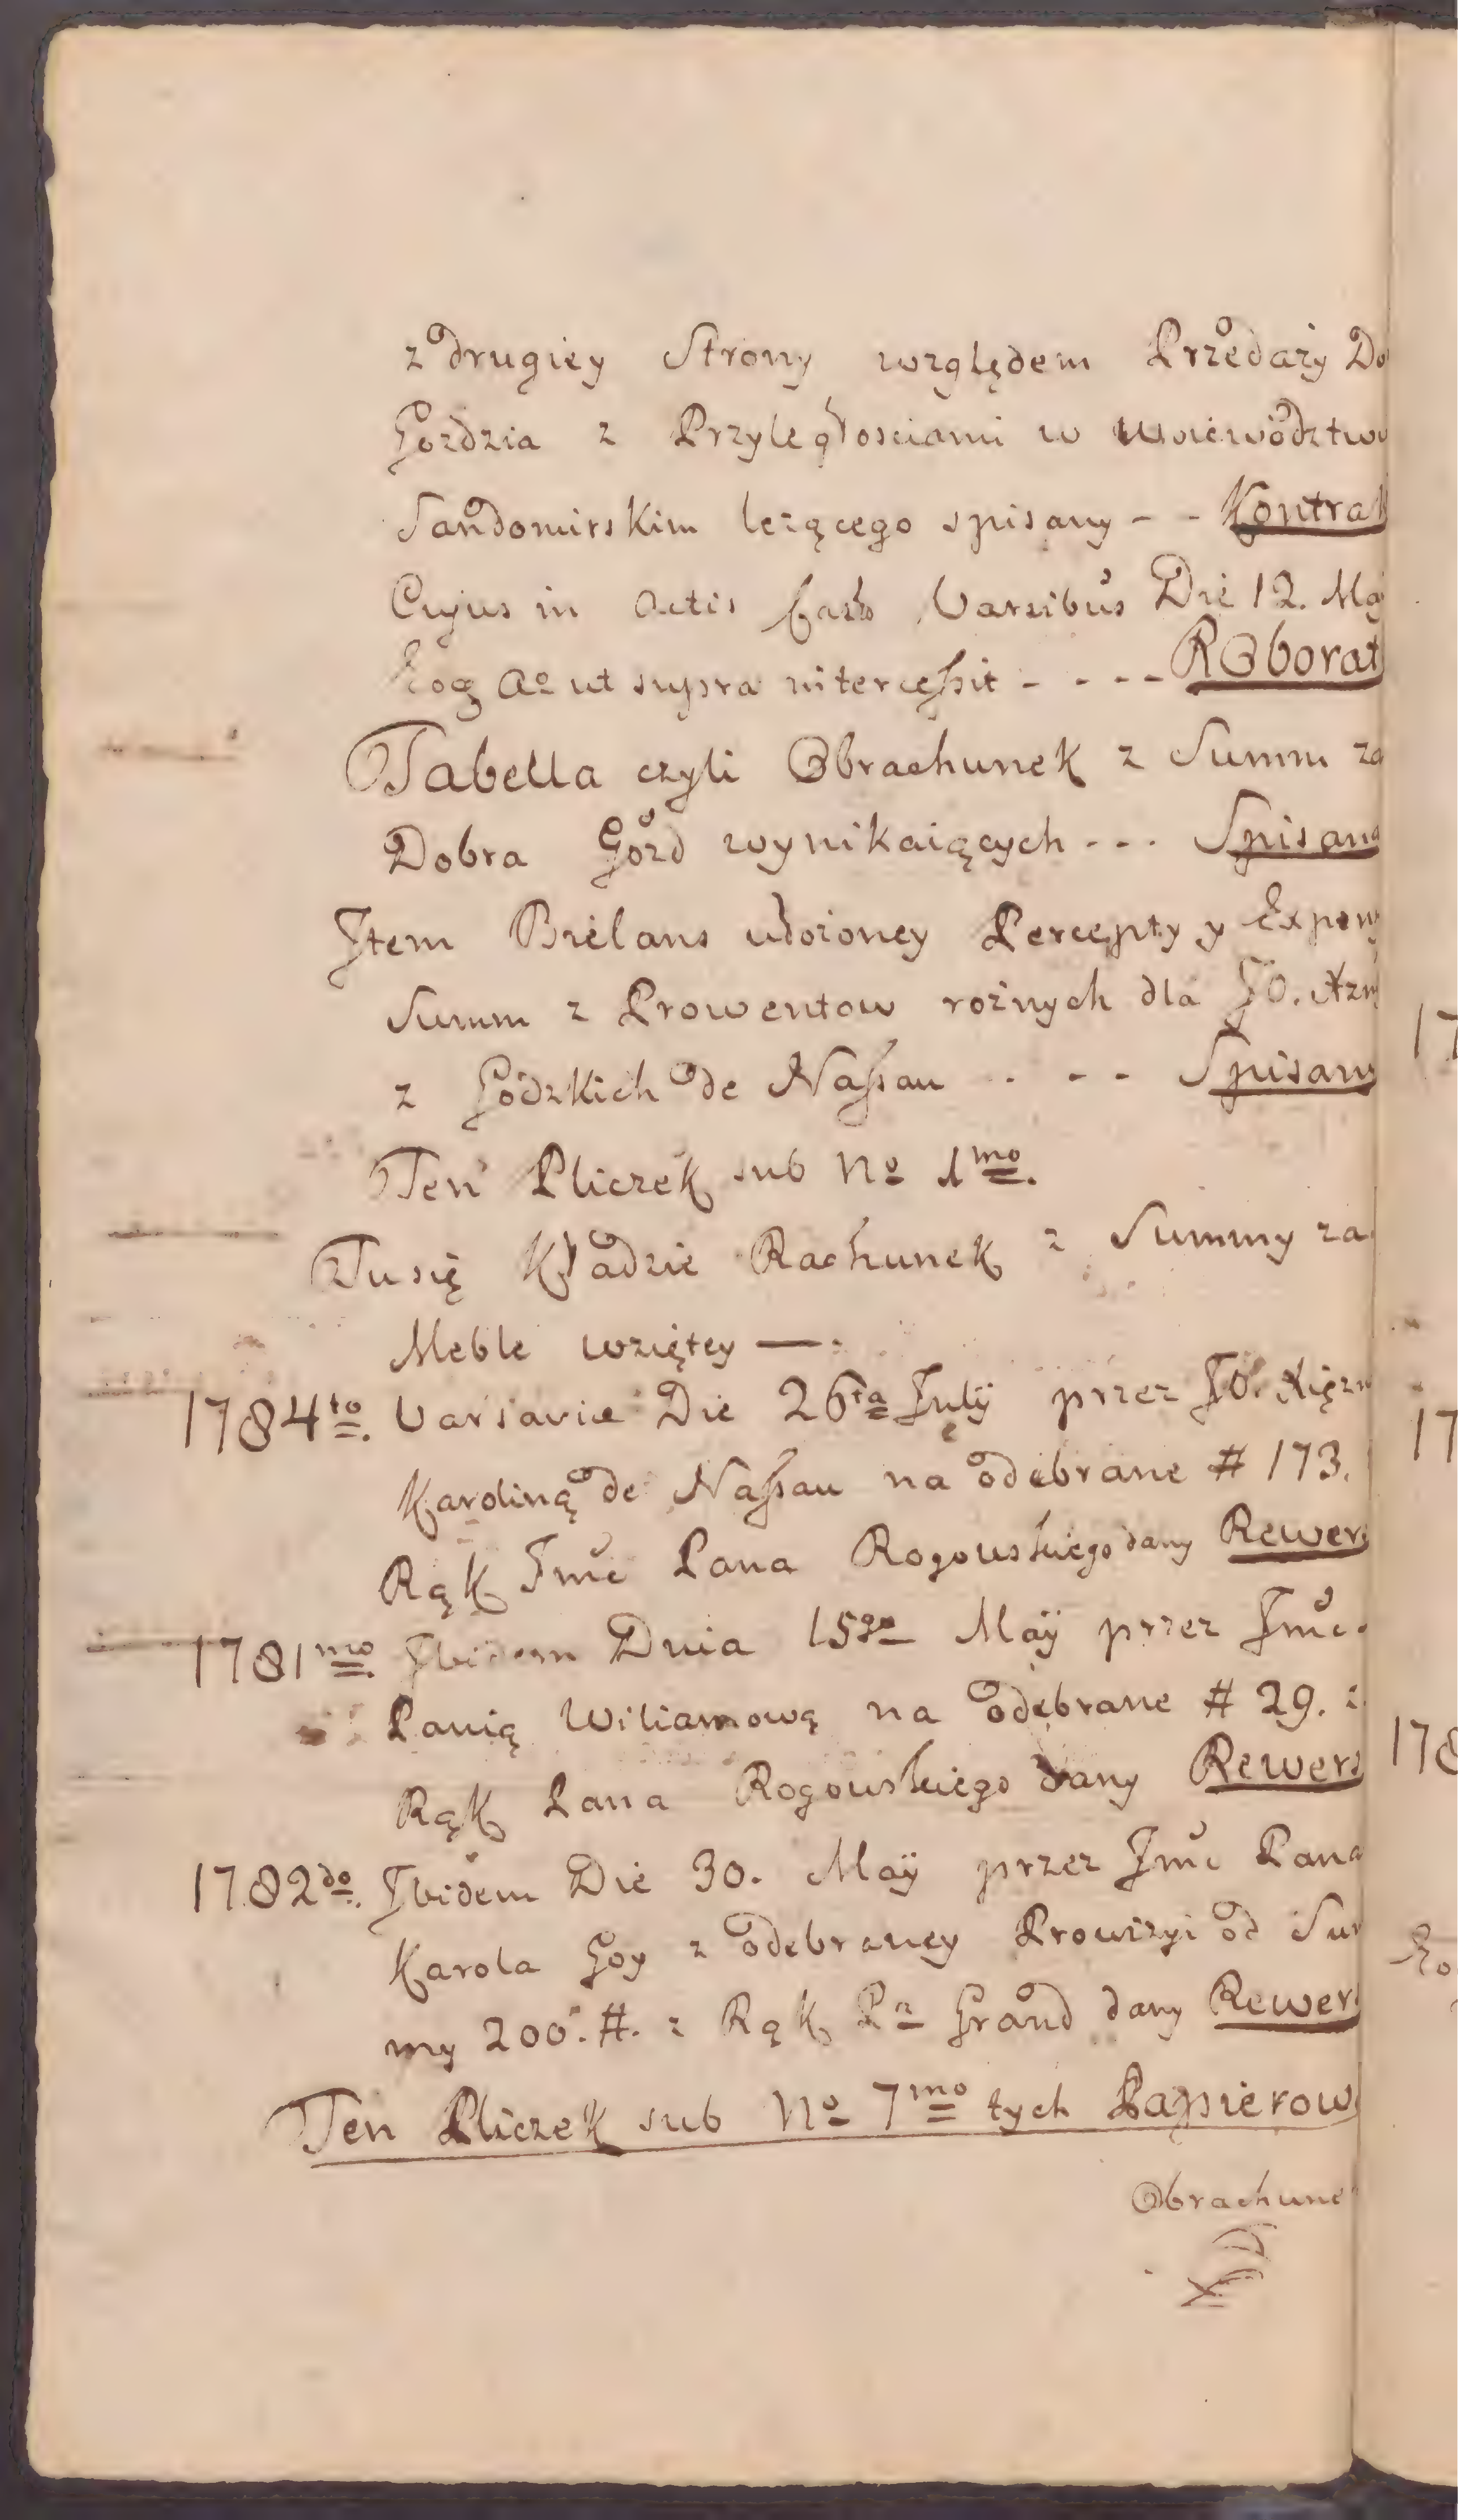 z drugiey Strony względem Przedaży Do
Gozdzia z Przyległosciami w Woiewodztwu
Sandomirskim leżącego spisany - - Kontrak
Cujus in Actis Varsibus Die 12. May
Eog Aº ut supra intercessit - - - - Roborat
Tabella czyli Obrachunek z Summ za
Dobra Gozd wynikaiących - - - Spisana
Item Bielans ułożoney Percepty y Expens
Summ z Prowentow rożnych dla JO. Xzny
z Godzkich de Nassau - - - Spisany
Ten Pliczek sub Nº 1mo.
Tu się Kładzie Rachunek z Summy za
Meble wziętey —:
1784to. Varsavie Die 26ta July przez JO. Xiężn
Karoliną de Nassau na odebrane # 173.
Rąk Jmć Pana Rogowskiego dany Rewers
1781mo Ibidem Dnia 15go Maÿ przez Jmć
Panią Wiliamową na odebrane # 29. z
Rąk Pana Rogowskiego dany Rewers
1782do. Ibidem Die 30. Maÿ przez Jmć Pana
Karola Goy z odebraney Prowizyi od Sum
my 200. #. z Rąk Pa Grand dany Rewers
Ten Pliczek sub Nº 7mo tych Papierow
Obrachunek
17
17
178